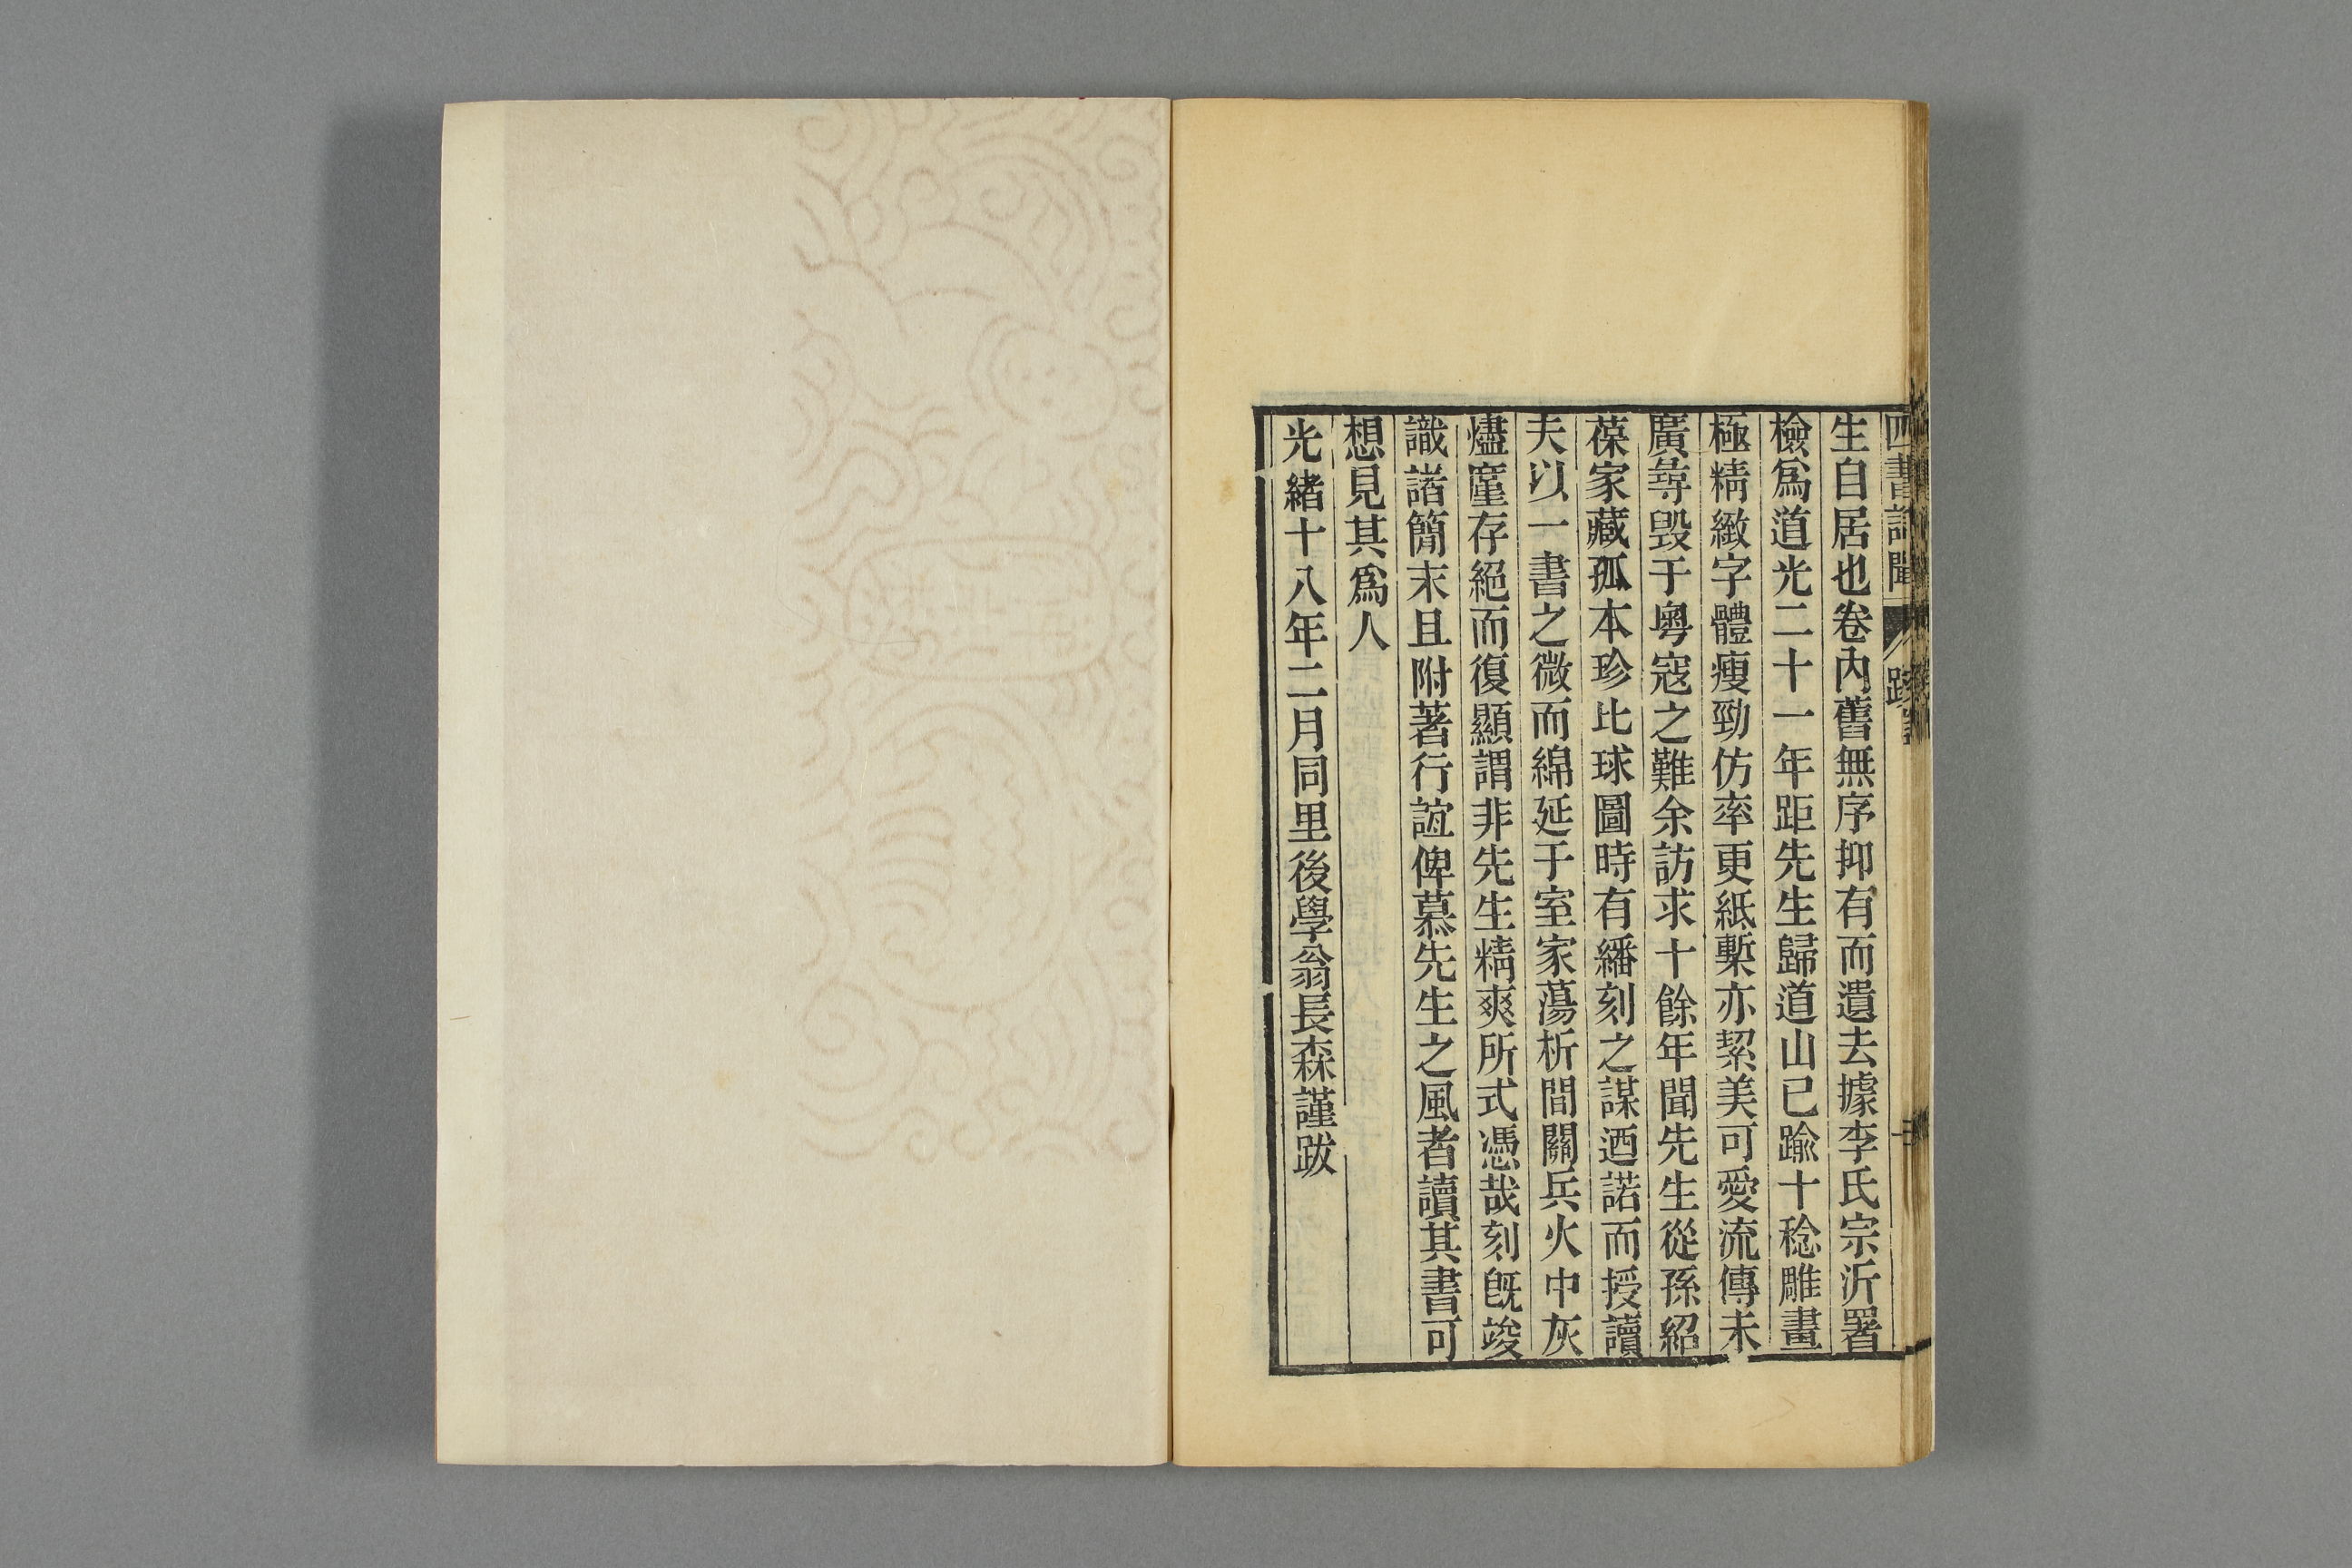 生自居也卷內舊無序抑有而遺去據李氏宗沂署
檢爲道光二十一年距先生歸道山已踰十稔雕畫
極精緻字體瘦勁仿率更紙槧亦絜美可愛流傳未
廣尋毀于粵寇之難余訪求十餘年聞先生從孫紹
葆家藏孤本珍比球圖時有繙刻之謀迺諾而授讀
夫以一書之微而綿延于室家蕩析間關兵火中灰
燼廑存絕而復顯謂非先生精爽所式憑哉刻旣竣
識諸簡末且附著行誼俾慕先生之風者讀其書可
想見其爲人
光緒十八年二月同里後學翁長森謹跋